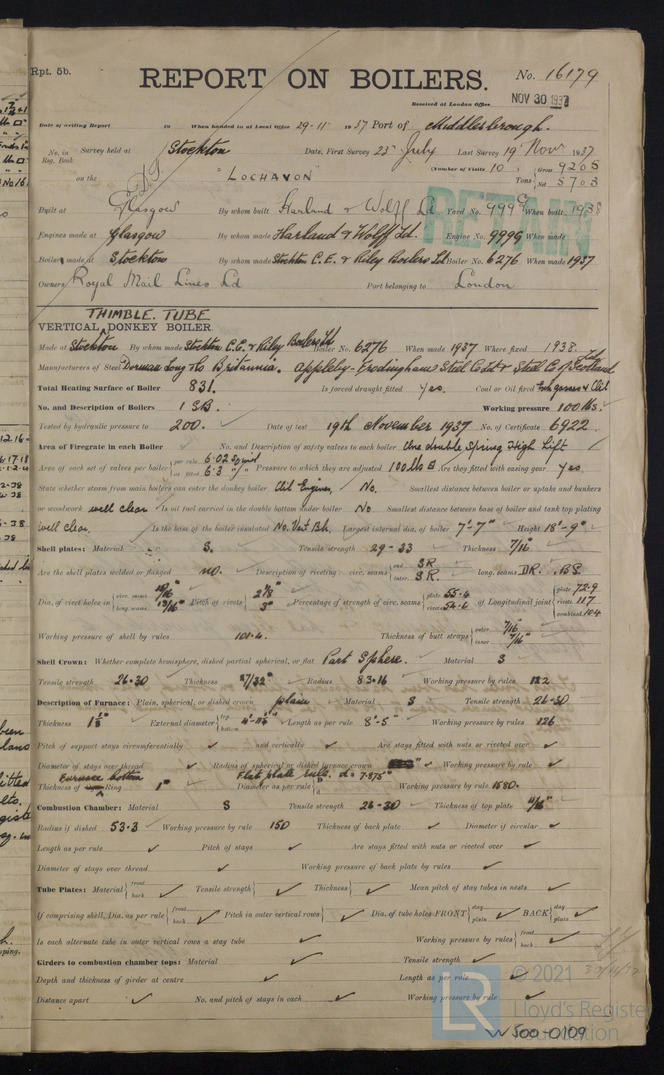 Rpt. 5b.
REPORT ON BOILERS.
No. 16179
Received at London Office NOV 30 1937
Date of writing Report 19 When handed in at Local Office 29-11- 1937 Port of Middlesbrough.
No. in Reg. Book Survey held at Stockton Date, First Survey 23rd July Last Survey 19 Nov 1937
(Number of Visits 10) Gross 9205
on the "LOCHAVON" Tons Net 5703
Built at Glasgow By whom built Harland & Wolff Ld Yard No. 999G When built 1938
Engines made at Glasgow By whom made Harland & Wolff Ld. Engine No. 999G When made
Boilers made at Stockton By whom made Stockton C.E. & Riley Boilers Ld Boiler No. 6276 When made 1937
Owners Royal Mail Lines Ld Port belonging to London
RETAIN
THIMBLE TUBE
VERTICAL DONKEY BOILER.
Made at Stockton By whom made Stockton C.E. & Riley Boilers Ld Boiler No. 6276 When made 1937 Where fixed 1938.
Manufacturers of Steel Dorman Long & Co Britannia. Appleby-Frodingham Steel Co Ltd & Steel Co of Scotland
Total Heating Surface of Boiler 831. Is forced draught fitted Yes. Coal or Oil fired Exh gases & Oil
No. and Description of Boilers 1 S.B. Working pressure 100 lbs.
Tested by hydraulic pressure to 200. Date of test 19th November 1937 No. of Certificate 6922.
Area of Firegrate in each Boiler No. and Description of safety valves to each boiler One double Spring High Lift
Area of each set of valves per boiler per rule 6.02 sq in as fitted 6.3 Pressure to which they are adjusted 100 lb Are they fitted with easing gear Yes
State whether steam from main boilers can enter the donkey boiler Oil Engines, No. Smallest distance between boiler or uptake and bunkers
or woodwork well clear Is oil fuel carried in the double bottom under boiler No Smallest distance between base of boiler and tank top plating
well clear. Is the base of the boiler insulated No. Largest internal dia. of boiler 7'-7" Height 18'-9"
Shell plates: Material S. Tensile strength 29-33 Thickness 7/16"
Are the shell plates welded or flanged no. Description of riveting: circ. seams end SR inter. SR. long. seams DR. BS.
Dia. of rivet holes in circ. seams long. seams 13/16" Pitch of rivets 2 1/8" 3" Percentage of strength of circ. seams plate 55.4 rivets 54.6 of Longitudinal joint plate 72.9 rivets 117 combined 104
Working pressure of shell by rules 101.4. Thickness of butt straps outer 7/16 inner 7/16"
Shell Crown: Whether complete hemisphere, dished partial spherical, or flat Part Sphere. Material S
Tensile strength 26-30 Thickness 27/32" Radius 83.16 Working pressure by rules 122
Description of Furnace: Plain, spherical, or dished crown plain Material S Tensile strength 26-30
Thickness External diameter top bottom Length as per rule 8'-5" Working pressure by rules 126
Pitch of support stays circumferentially and vertically Are stays fitted with nuts or riveted over
Diameter of stays over thread Radius of spherical or dished furnace crown Working pressure by rule
Furnace bottom Flat plate rule. d= 7.875"
Thickness of Ring 1" Diameter as per rule D d Working pressure by rule 1580.
Combustion Chamber: Material S Tensile strength 26-30 Thickness of top plate 11/16"
Radius if dished 53.3 Working pressure by rule 150 Thickness of back plate Diameter if circular
Length as per rule Pitch of stays Are stays fitted with nuts or riveted over
Diameter of stays over thread Working pressure of back plate by rules
Tube Plates: Material front back Tensile strength Thickness Mean pitch of stay tubes in nests
If comprising shell, Dia. as per rule front back Pitch in outer vertical rows Dia. of tube holes FRONT stay plain BACK stay plain
Is each alternate tube in outer vertical rows a stay tube Working pressure by rules front back
Girders to combustion chamber tops: Material Tensile strength
Depth and thickness of girder at centre Length as per rule
Distance apart No. and pitch of stays in each Working pressure by rule
© 2021
LR
Lloyd's Register
Foundation
W500-0109